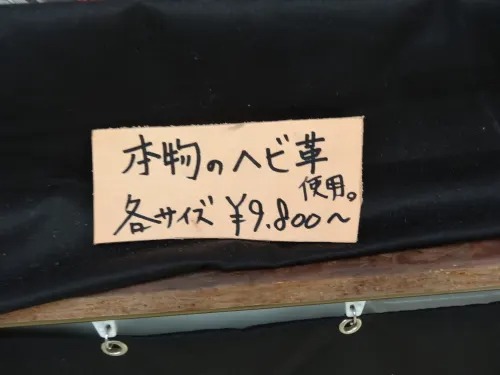 本物のヘビ革
使用。
各サイズ ¥9.800〜